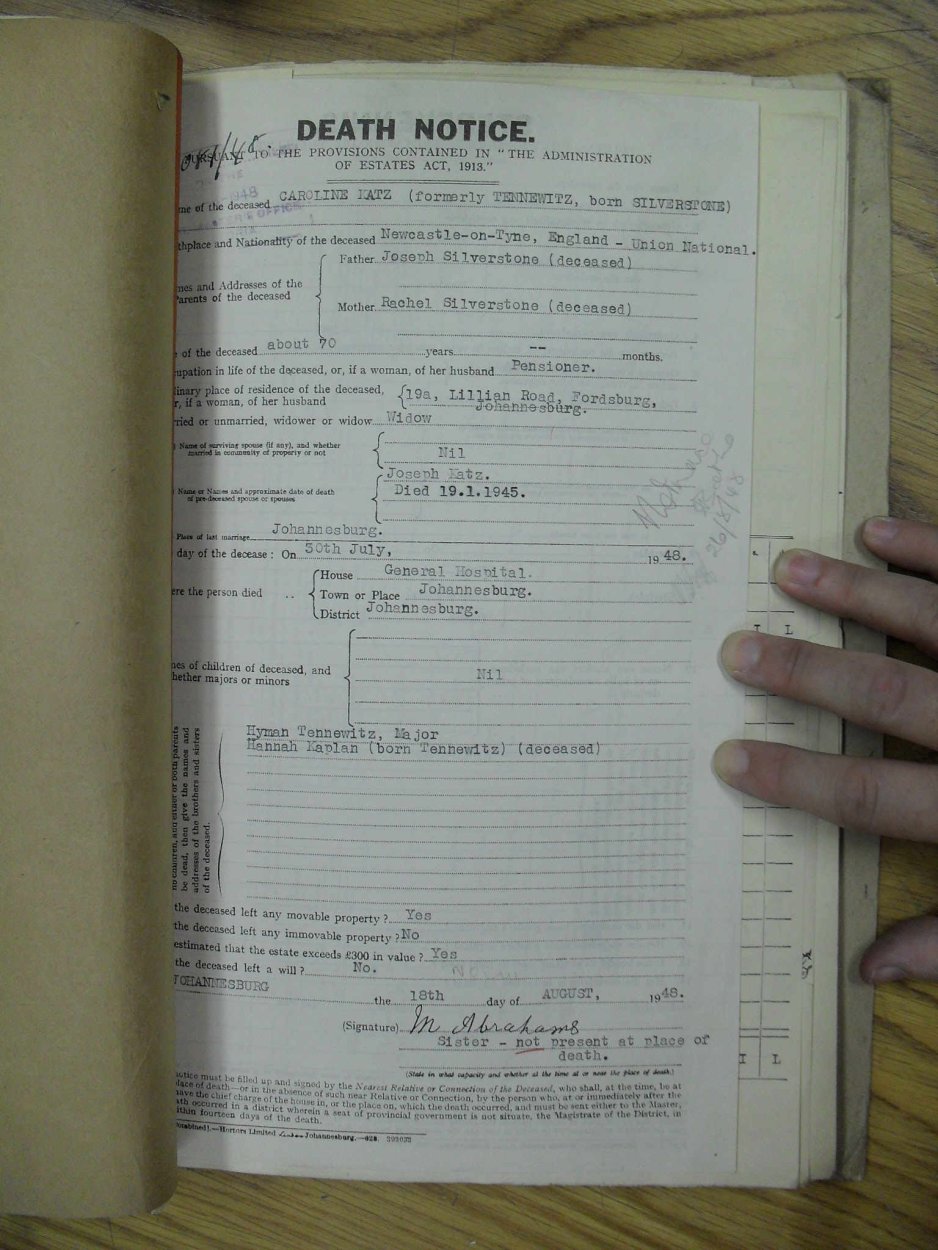 DEATH NOTICE.
PURSUANT TO THE PROVISIONS CONTAINED IN "THE ADMINISTRATION
OF ESTATES ACT, 1913."
me of the deceased CAROLINE KATZ (formerly TENNEWITZ, born SILVERSTONE)
thplace and Nationality of the deceased Newcastle-on-Tyne, England - Union National.
Father Joseph Silverstone (deceased)
mes and Addresses of the
Parents of the deceased
Mother Rachel Silverstone (deceased)
of the deceased about 70 years -- months.
upation in life of the deceased, or, if a woman, of her husband Pensioner.
linary place of residence of the deceased,
r, if a woman, of her husband
19a, Lillian Road, Fordsburg,
Johannesburg.
rried or unmarried, widower or widow Widow
Name of surviving spouse (if any), and whether
married in community of property or not
Nil
Joseph Katz.
Name or Names and approximate date of death
of pre-deceased spouse or spouses
Died 19.1.1945.
Place of last marriage Johannesburg.
day of the decease : On 30th July, 1948.
House General Hospital.
ere the person died .. Town or Place Johannesburg.
District Johannesburg.
26/8/48
mes of children of deceased, and
hether majors or minors
Nil
Hyman Tennewitz, Major
Hannah Kaplan (born Tennewitz) (deceased)
no children, and either or both parents
be dead, then give the names and
addresses of the brothers and sisters
of the deceased.
the deceased left any movable property ? Yes
the deceased left any immovable property ? No
estimated that the estate exceeds £300 in value ? Yes
the deceased left a will ? No.
JOHANNESBURG the 18th day of AUGUST, 1948.
(Signature) M Abrahams
Sister - not present at place of
death.
(State in what capacity and whether at the time at or near the place of death.)
otice must be filled up and signed by the Nearest Relative or Connection of the Deceased, who shall, at the time, be at
lace of death—or in the absence of such near Relative or Connection, by the person who, at or immediately after the
have the chief charge of the house in, or the place on, which the death occurred, and must be sent either to the Master,
ath occurred in a district wherein a seat of provincial government is not situate, the Magistrate of the District, in
ithin fourteen days of the death.
Hortors Limited Johannesburg.—628.
I L
I L